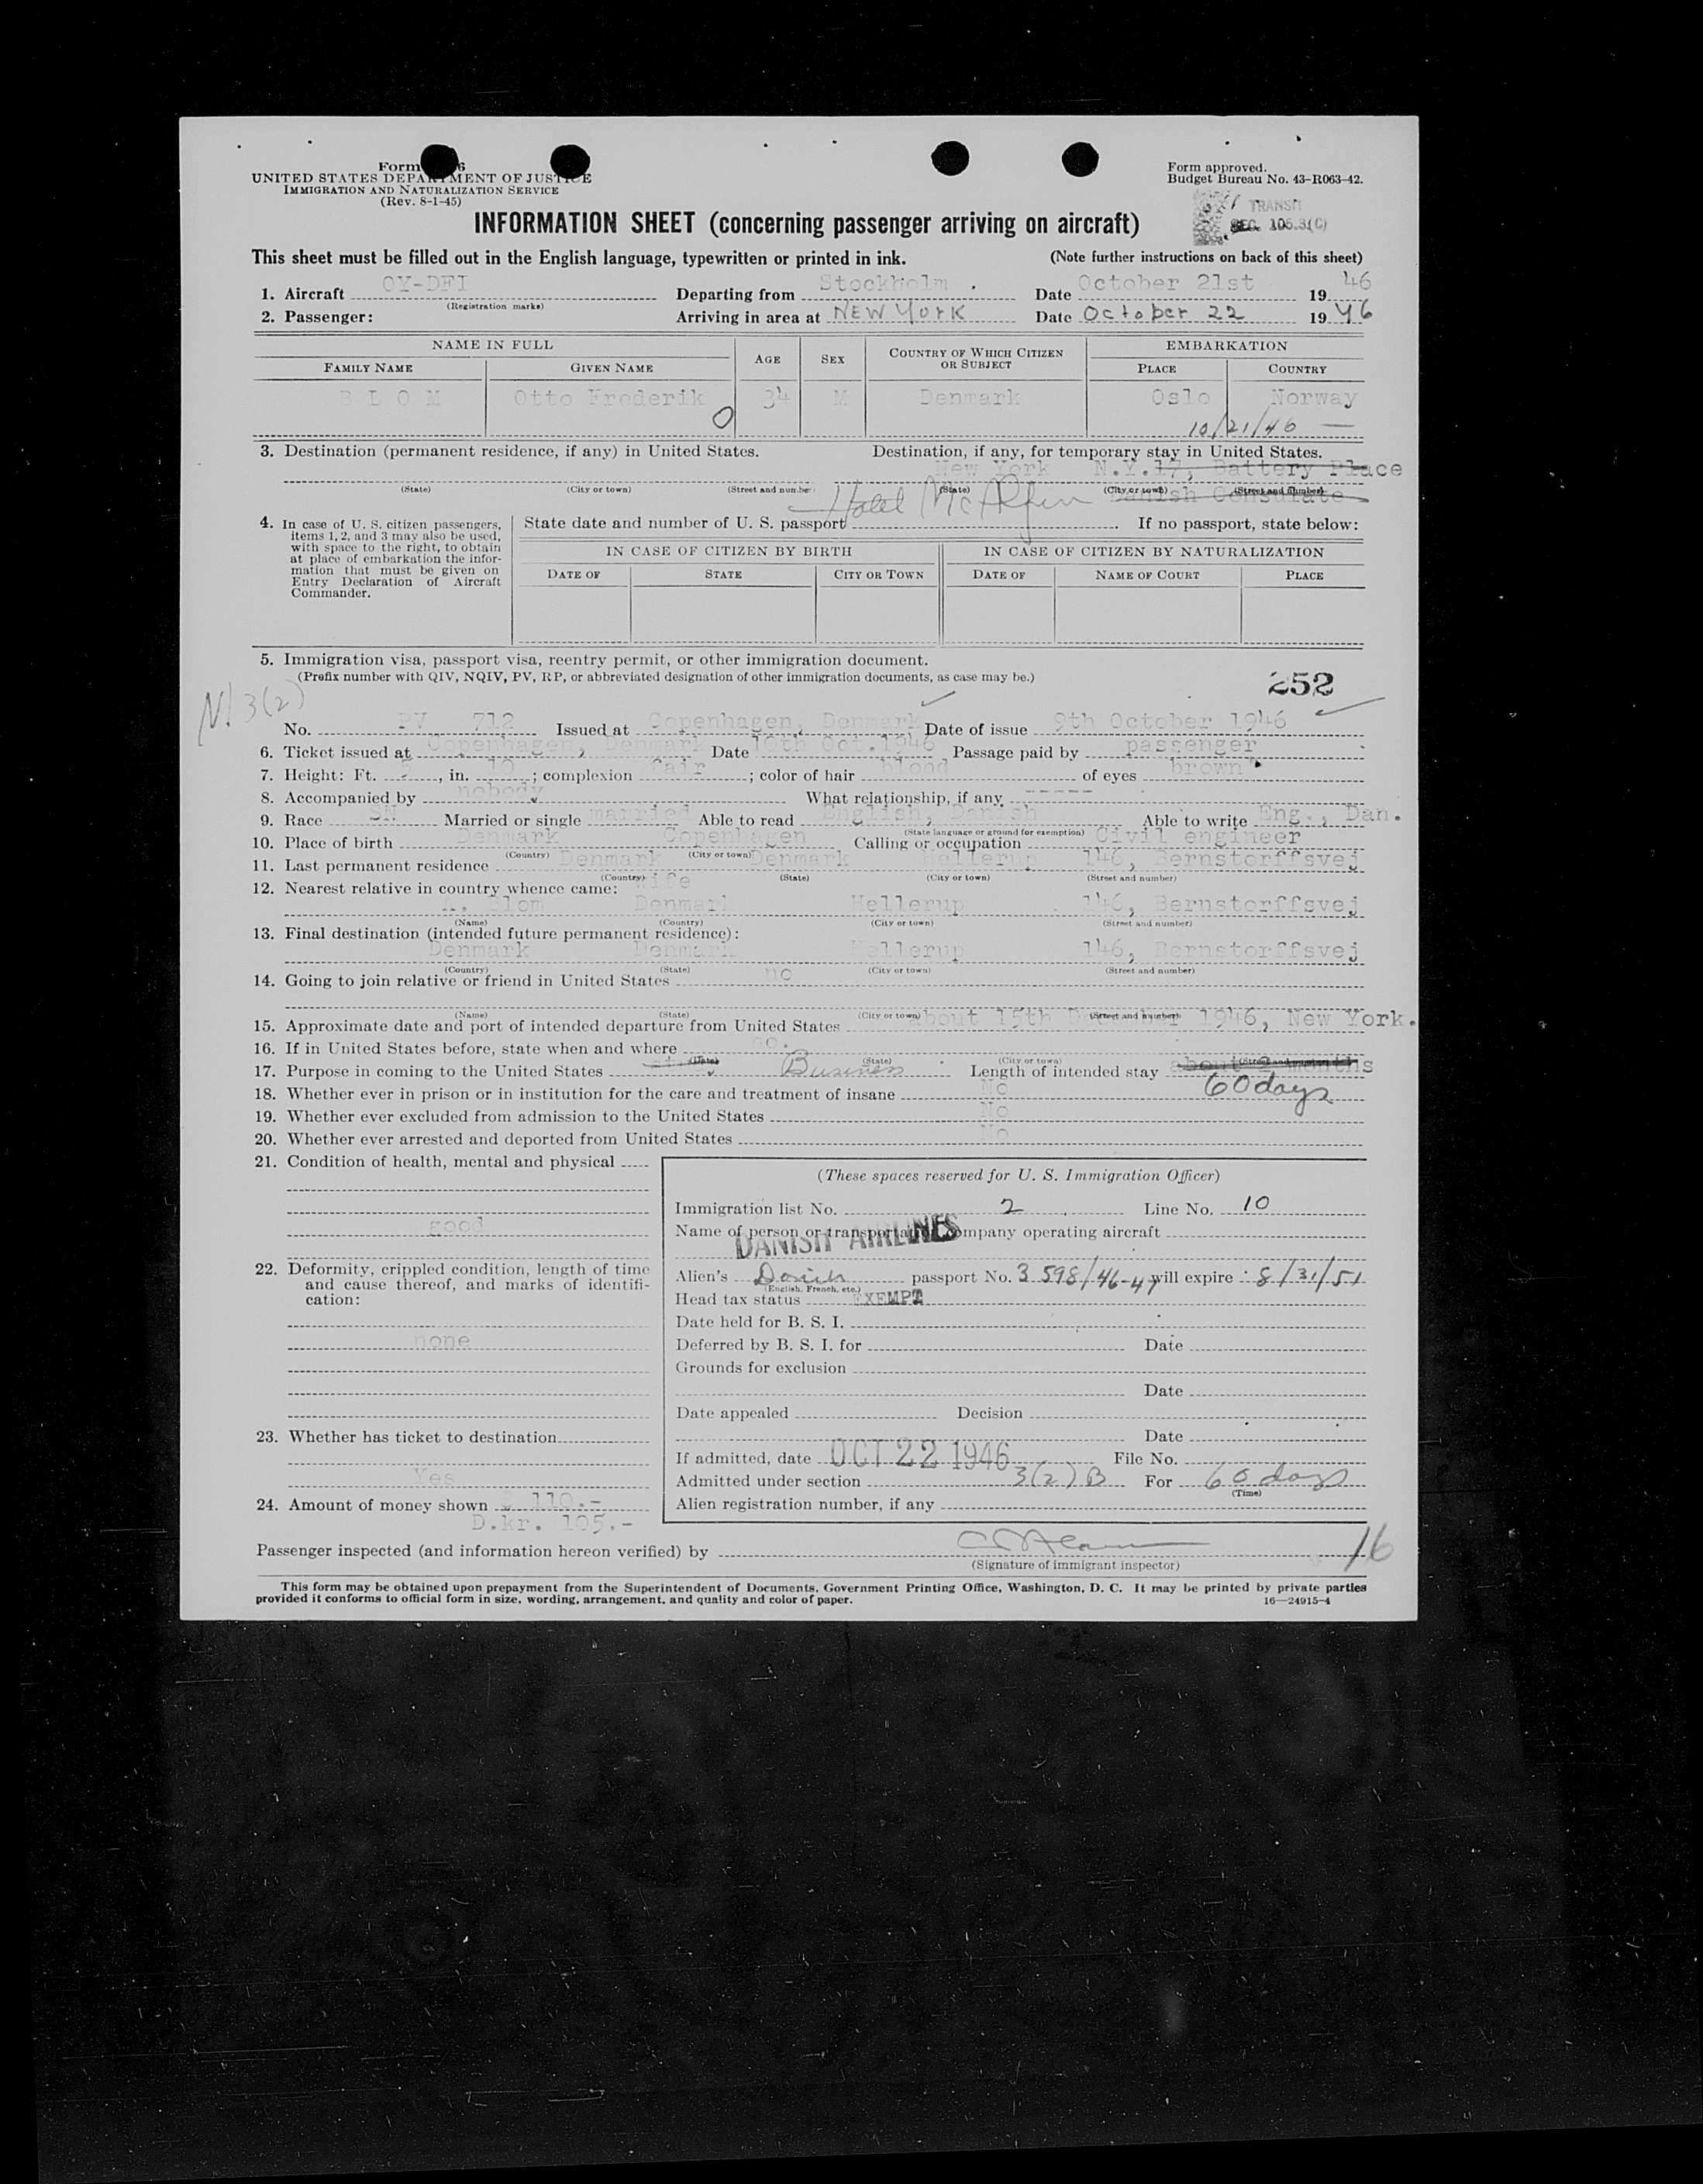 Form 6
UNITED STATES DEPARTMENT OF JUSTICE
IMMIGRATION AND NATURALIZATION SERVICE
(Rev. 8-1-45)
Form approved.
Budget Bureau No. 43-R063-42.
TRANSIT
SEC. 105.3(C)
INFORMATION SHEET (concerning passenger arriving on aircraft)
This sheet must be filled out in the English language, typewritten or printed in ink. (Note further instructions on back of this sheet)
1. Aircraft OY-DFI Departing from Stockholm. Date October 21st 1946
(Registration marks)
2. Passenger: Arriving in area at NEW YORK Date October 22 1946
NAME IN FULL AGE SEX COUNTRY OF WHICH CITIZEN OR SUBJECT EMBARKATION
FAMILY NAME GIVEN NAME PLACE COUNTRY
BLOM Otto Frederik 34 M Denmark Oslo Norway
0 10/21/46 —
3. Destination (permanent residence, if any) in United States. Destination, if any, for temporary stay in United States.
New York N.Y. 17, Battery Place
(State) (City or town) (Street and number) (State) (City or town) (Street and number)
Hotel McAlpin Danish Consulate
4. In case of U. S. citizen passengers, items 1, 2, and 3 may also be used, with space to the right, to obtain at place of embarkation the information that must be given on Entry Declaration of Aircraft Commander.
State date and number of U. S. passport If no passport, state below:
IN CASE OF CITIZEN BY BIRTH IN CASE OF CITIZEN BY NATURALIZATION
DATE OF STATE CITY OR TOWN DATE OF NAME OF COURT PLACE
5. Immigration visa, passport visa, reentry permit, or other immigration document.
(Prefix number with QIV, NQIV, PV, RP, or abbreviated designation of other immigration documents, as case may be.)
252
3(2)
No. PV 712 Issued at Copenhagen, Denmark Date of issue 9th October 1946
6. Ticket issued at Copenhagen, Denmark Date 10th Oct. 1946 Passage paid by passenger
7. Height: Ft. 5, in. 10; complexion fair; color of hair blond of eyes brown
8. Accompanied by nobody What relationship, if any -----
9. Race SN Married or single married Able to read English, Danish Able to write Eng., Dan.
(State language or ground for exemption)
10. Place of birth Denmark Copenhagen Calling or occupation Civil engineer
(Country) (City or town)
11. Last permanent residence Denmark Denmark Hellerup 146, Bernstorffsvej
(Country) (State) (City or town) (Street and number)
12. Nearest relative in country whence came: wife
A. Blom Denmark Hellerup 146, Bernstorffsvej
(Name) (Country) (City or town) (Street and number)
13. Final destination (intended future permanent residence):
Denmark Denmark Hellerup 146, Bernstorffsvej
(Country) (State) (City or town) (Street and number)
14. Going to join relative or friend in United States no
(Name) (State) (City or town) (Street and number)
15. Approximate date and port of intended departure from United States about 15th December 1946, New York.
16. If in United States before, state when and where no.
(Date) (State) (City or town) (Street and number)
17. Purpose in coming to the United States Business Length of intended stay about 2 months
60 days
18. Whether ever in prison or in institution for the care and treatment of insane No
19. Whether ever excluded from admission to the United States No
20. Whether ever arrested and deported from United States No
21. Condition of health, mental and physical
good
22. Deformity, crippled condition, length of time and cause thereof, and marks of identification:
none
23. Whether has ticket to destination
Yes
24. Amount of money shown $ 110.-
D.kr. 105.-
(These spaces reserved for U. S. Immigration Officer)
Immigration list No. 2 Line No. 10
Name of person or transportation company operating aircraft
DANISH AIRLINES
Alien's Danish passport No. 3598/46-47 will expire 8/31/51
(English, French, etc.)
Head tax status EXEMPT
Date held for B. S. I.
Deferred by B. S. I. for Date
Grounds for exclusion
Date
Date appealed Decision
Date
If admitted, date OCT 22 1946 File No.
Admitted under section 3(2)B For 60 days
(Time)
Alien registration number, if any
Passenger inspected (and information hereon verified) by
(Signature of immigrant inspector)
16
This form may be obtained upon prepayment from the Superintendent of Documents, Government Printing Office, Washington, D. C. It may be printed by private parties
provided it conforms to official form in size, wording, arrangement, and quality and color of paper. 16—24915-4